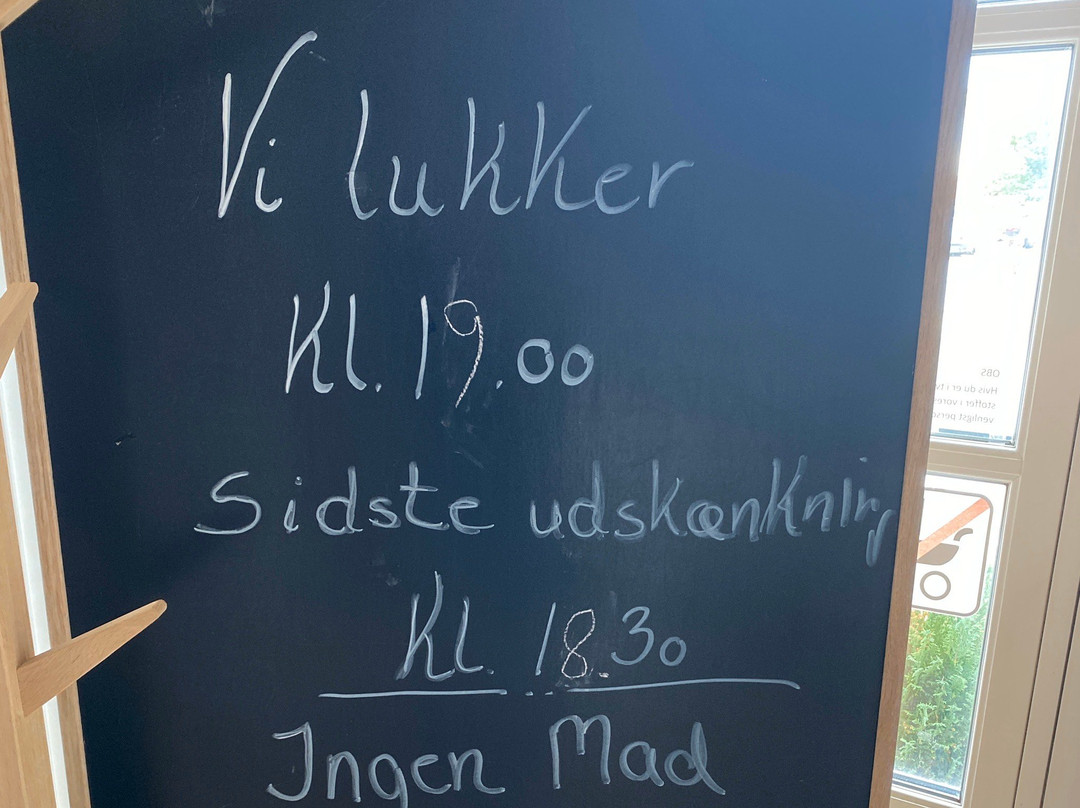 Vi lukker
Kl. 19.00
Sidste udskænkning
Kl. 18.30
Ingen Mad
OBS
Hvis du er i tv
stoffer i vores
venligst pers